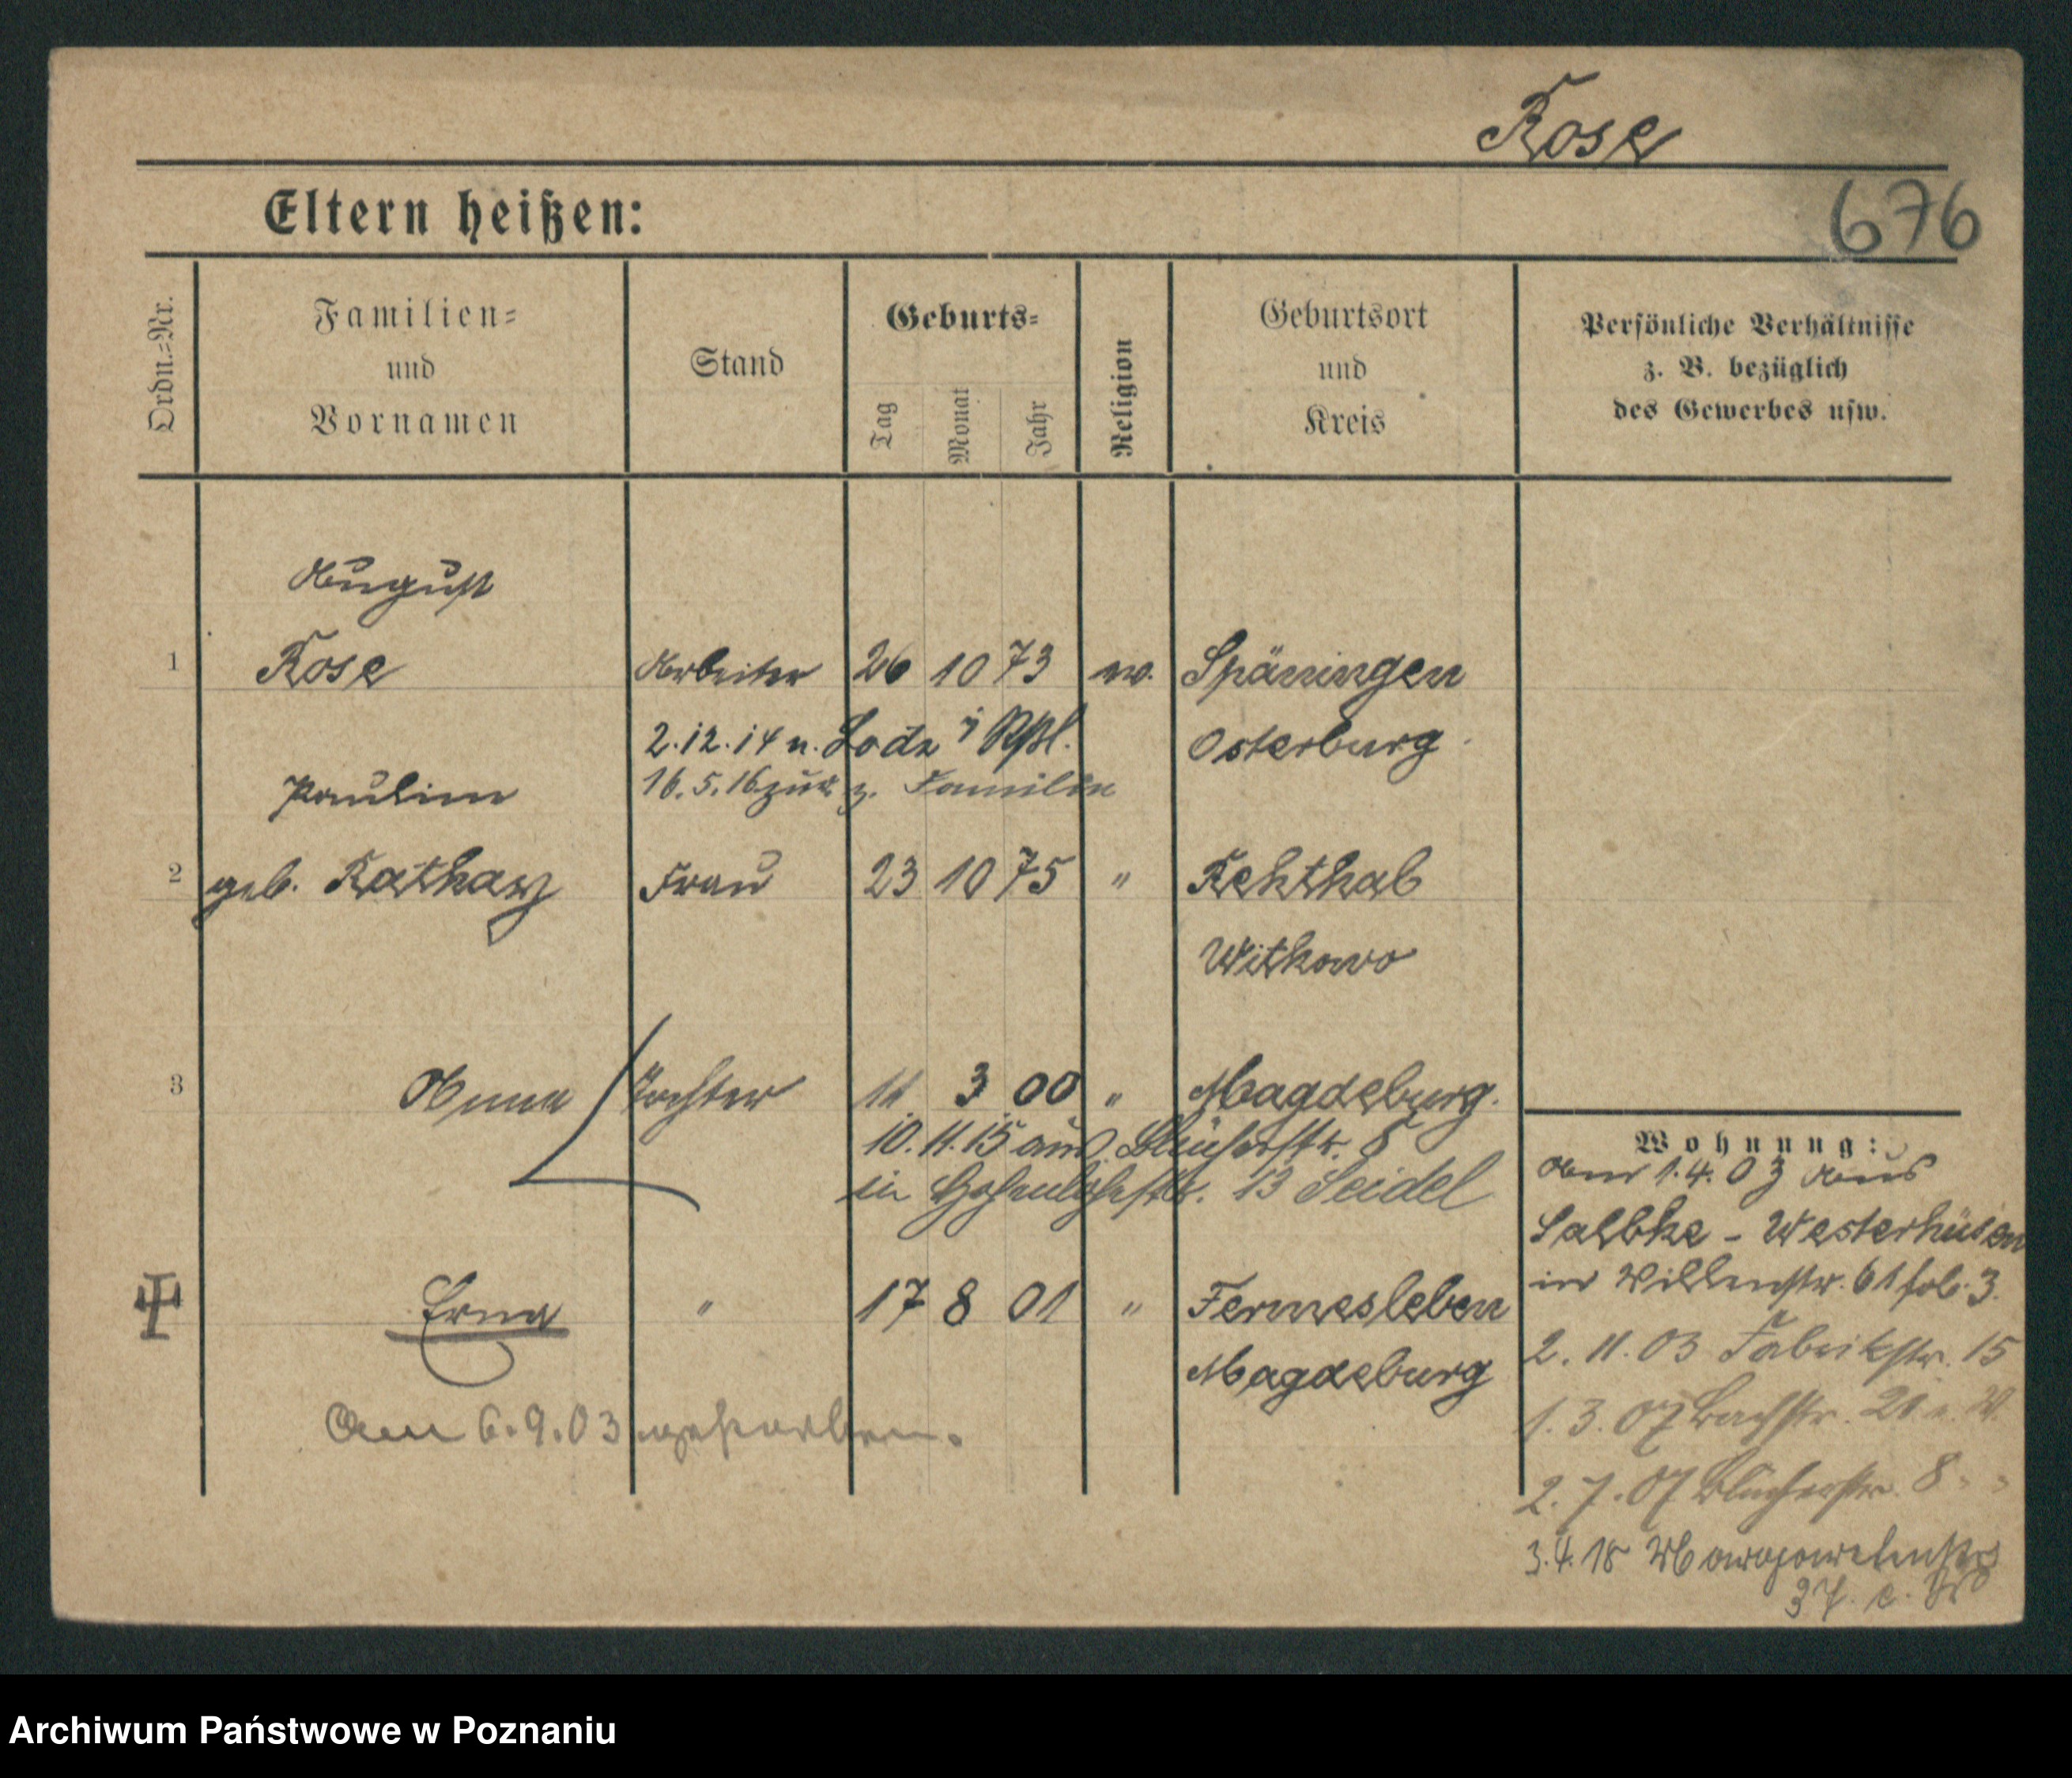 Rose
676
Eltern heißen:
Ordn.-Nr.
Familien-
und
Vornamen
Stand
Geburts-
Tag
Monat
Jahr
Religion
Geburtsort
und
Kreis
Persönliche Verhältnisse
z. B. bezüglich
des Gewerbes usw.
August
1 Rose Arbeiter 26 10 73 ev. Späningen
2.12.14 n. Lodz Osterburg
Pauline 16.5.16 zur. z. Familie
2 geb. Frau 23 10 75 "
Witkowo
3 Anna Tochter 11 3 00 " Magdeburg.
10.11.15 aus Blücherstr. 8
in Hohenlohestr. 13 Seidel
Erna " 17 8 01 " Fermesleben
Magdeburg
Am 6.9.03 gestorben.
Wohnung:
Am 1.4.03 aus
Salbke - Westerhüsen
in 61
2.11.03 Fabrikstr. 15
1.3.07 Bachstr.
2.7.07 Blücherstr. 8
3.4.18
37.
Archiwum Państwowe w Poznaniu